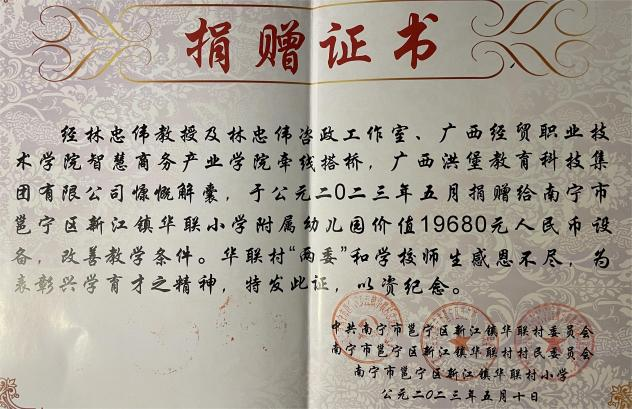 捐赠证书
经林忠伟教授及林忠伟咨政工作室、广西经贸职业技
术学院智慧商务产业学院牵线搭桥，广西洪堡教育科技集
团有限公司慷慨解囊，于公元二〇二三年五月捐赠给南宁市
邕宁区新江镇华联小学附属幼儿园价值19680元人民币设
备，改善教学条件。华联村“两委”和学校师生感恩不尽，为
表彰兴学育才之精神，特发此证，以资纪念。
中共南宁市邕宁区新江镇华联村委员会
南宁市邕宁区新江镇华联村村民委员会
南宁市邕宁区新江镇华联村小学
公元二〇二三年五月十日